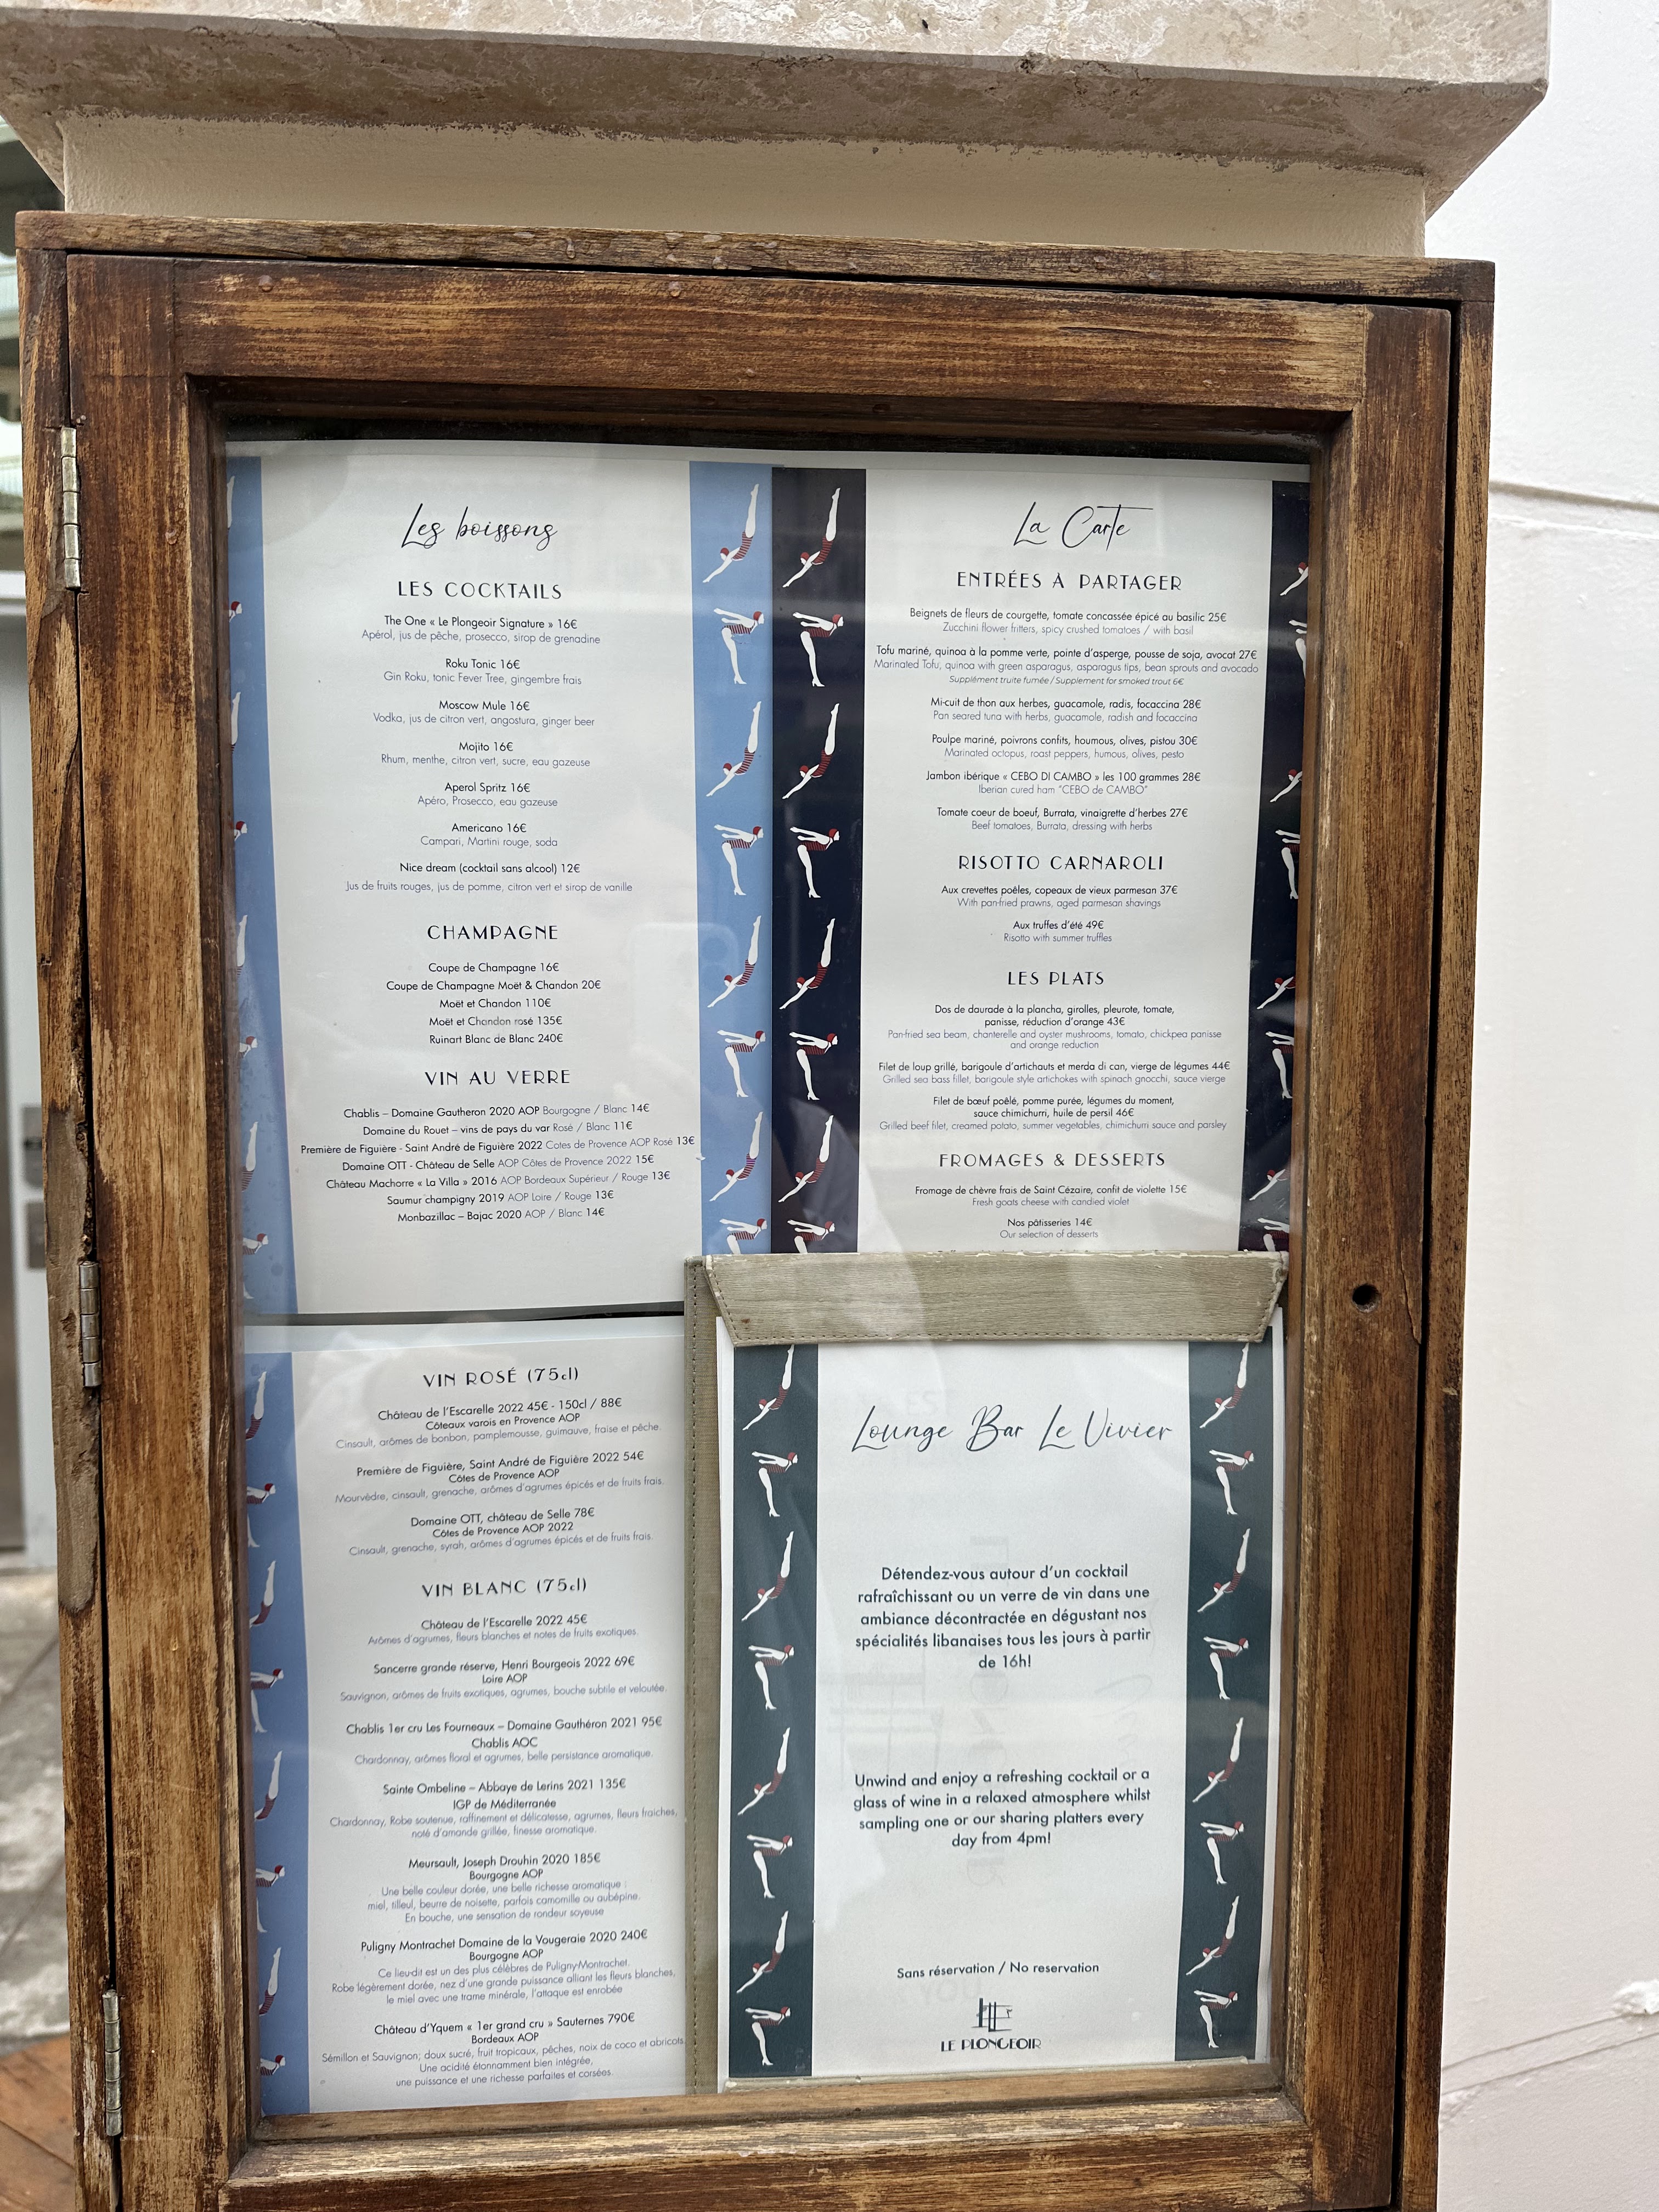 Les boissons
LES COCKTAILS
The One « Le Plongeoir Signature » 16€
Apérol, jus de pêche, prosecco, sirop de grenadine
Roku Tonic 16€
Gin Roku, tonic Fever Tree, gingembre frais
Moscow Mule 16€
Vodka, jus de citron vert, angostura, ginger beer
Mojito 16€
Rhum, menthe, citron vert, sucre, eau gazeuse
Aperol Spritz 16€
Apéro, Prosecco, eau gazeuse
Americano 16€
Campari, Martini rouge, soda
Nice dream (cocktail sans alcool) 12€
Jus de fruits rouges, jus de pomme, citron vert et sirop de vanille
CHAMPAGNE
Coupe de Champagne 16€
Coupe de Champagne Moët & Chandon 20€
Moët et Chandon 110€
Moët et Chandon rosé 135€
Ruinart Blanc de Blanc 240€
VIN AU VERRE
Chablis – Domaine Gautheron 2020 AOP Bourgogne / Blanc 14€
Domaine du Rouet – vins de pays du var Rosé / Blanc 11€
Première de Figuière - Saint André de Figuière 2022 Cotes de Provence AOP Rosé 13€
Domaine OTT - Château de Selle AOP Côtes de Provence 2022 15€
Château Machorre « La Villa » 2016 AOP Bordeaux Supérieur / Rouge 13€
Saumur champigny 2019 AOP Loire / Rouge 13€
Monbazillac – Bajac 2020 AOP / Blanc 14€
La Carte
ENTRÉES À PARTAGER
Beignets de fleurs de courgette, tomate concassée épicé au basilic 25€
Zucchini flower fritters, spicy crushed tomatoes / with basil
Tofu mariné, quinoa à la pomme verte, pointe d'asperge, pousse de soja, avocat 27€
Marinated Tofu, quinoa with green asparagus, asparagus tips, bean sprouts and avocado
Supplément truite fumée / Supplement for smoked trout 6€
Mi-cuit de thon aux herbes, guacamole, radis, focaccina 28€
Pan seared tuna with herbs, guacamole, radish and focaccina
Poulpe mariné, poivrons confits, houmous, olives, pistou 30€
Marinated octopus, roast peppers, humous, olives, pesto
Jambon ibérique « CEBO DI CAMBO » les 100 grammes 28€
Iberian cured ham "CEBO de CAMBO"
Tomate coeur de boeuf, Burrata, vinaigrette d'herbes 27€
Beef tomatoes, Burrata, dressing with herbs
RISOTTO CARNAROLI
Aux crevettes poêles, copeaux de vieux parmesan 37€
With pan-fried prawns, aged parmesan shavings
Aux truffes d'été 49€
Risotto with summer truffles
LES PLATS
Dos de daurade à la plancha, girolles, pleurote, tomate,
panisse, réduction d'orange 43€
Pan-fried sea beam, chanterelle and oyster mushrooms, tomato, chickpea panisse
and orange reduction
Filet de loup grillé, barigoule d'artichauts et merda di can, vierge de légumes 44€
Grilled sea bass fillet, barigoule style artichokes with spinach gnocchi, sauce vierge
Filet de bœuf poêlé, pomme purée, légumes du moment,
sauce chimichurri, huile de persil 46€
Grilled beef filet, creamed potato, summer vegetables, chimichurri sauce and parsley
FROMAGES & DESSERTS
Fromage de chèvre frais de Saint Cézaire, confit de violette 15€
Fresh goats cheese with candied violet
Nos pâtisseries 14€
Our selection of desserts
VIN ROSÉ (75cl)
Château de l'Escarelle 2022 45€ - 150cl / 88€
Côteaux varois en Provence AOP
Cinsault, arômes de bonbon, pamplemousse, guimauve, fraise et pêche.
Première de Figuière, Saint André de Figuière 2022 54€
Côtes de Provence AOP
Mourvèdre, cinsault, grenache, arômes d'agrumes épicés et de fruits frais.
Domaine OTT, château de Selle 78€
Côtes de Provence AOP 2022
Cinsault, grenache, syrah, arômes d'agrumes épicés et de fruits frais.
VIN BLANC (75cl)
Château de l'Escarelle 2022 45€
Arômes d'agrumes, fleurs blanches et notes de fruits exotiques.
Sancerre grande réserve, Henri Bourgeois 2022 69€
Loire AOP
Sauvignon, arômes de fruits exotiques, agrumes, bouche subtile et veloutée.
Chablis 1er cru Les Fourneaux – Domaine Gauthéron 2021 95€
Chablis AOC
Chardonnay, arômes floral et agrumes, belle persistance aromatique.
Sainte Ombeline – Abbaye de Lerins 2021 135€
IGP de Méditerranée
Chardonnay, Robe soutenue, raffinement et délicatesse, agrumes, fleurs fraiches,
noté d'amande grillée, finesse aromatique.
Meursault, Joseph Drouhin 2020 185€
Bourgogne AOP
Une belle couleur dorée, une belle richesse aromatique :
miel, tilleul, beurre de noisette, parfois camomille ou aubépine.
En bouche, une sensation de rondeur soyeuse
Puligny Montrachet Domaine de la Vougeraie 2020 240€
Bourgogne AOP
Ce lieu-dit est un des plus célèbres de Puligny-Montrachet.
Robe légèrement dorée, nez d'une grande puissance alliant les fleurs blanches,
le miel avec une trame minérale, l'attaque est enrobée
Château d'Yquem « 1er grand cru » Sauternes 790€
Bordeaux AOP
Sémillon et Sauvignon; doux sucré, fruit tropicaux, pêches, noix de coco et abricots.
Une acidité étonnamment bien intégrée,
une puissance et une richesse parfaites et corsées.
Lounge Bar Le Vivier
Détendez-vous autour d'un cocktail
rafraîchissant ou un verre de vin dans une
ambiance décontractée en dégustant nos
spécialités libanaises tous les jours à partir
de 16h!
Unwind and enjoy a refreshing cocktail or a
glass of wine in a relaxed atmosphere whilst
sampling one or our sharing platters every
day from 4pm!
Sans réservation / No reservation
LE PLONGEOIR